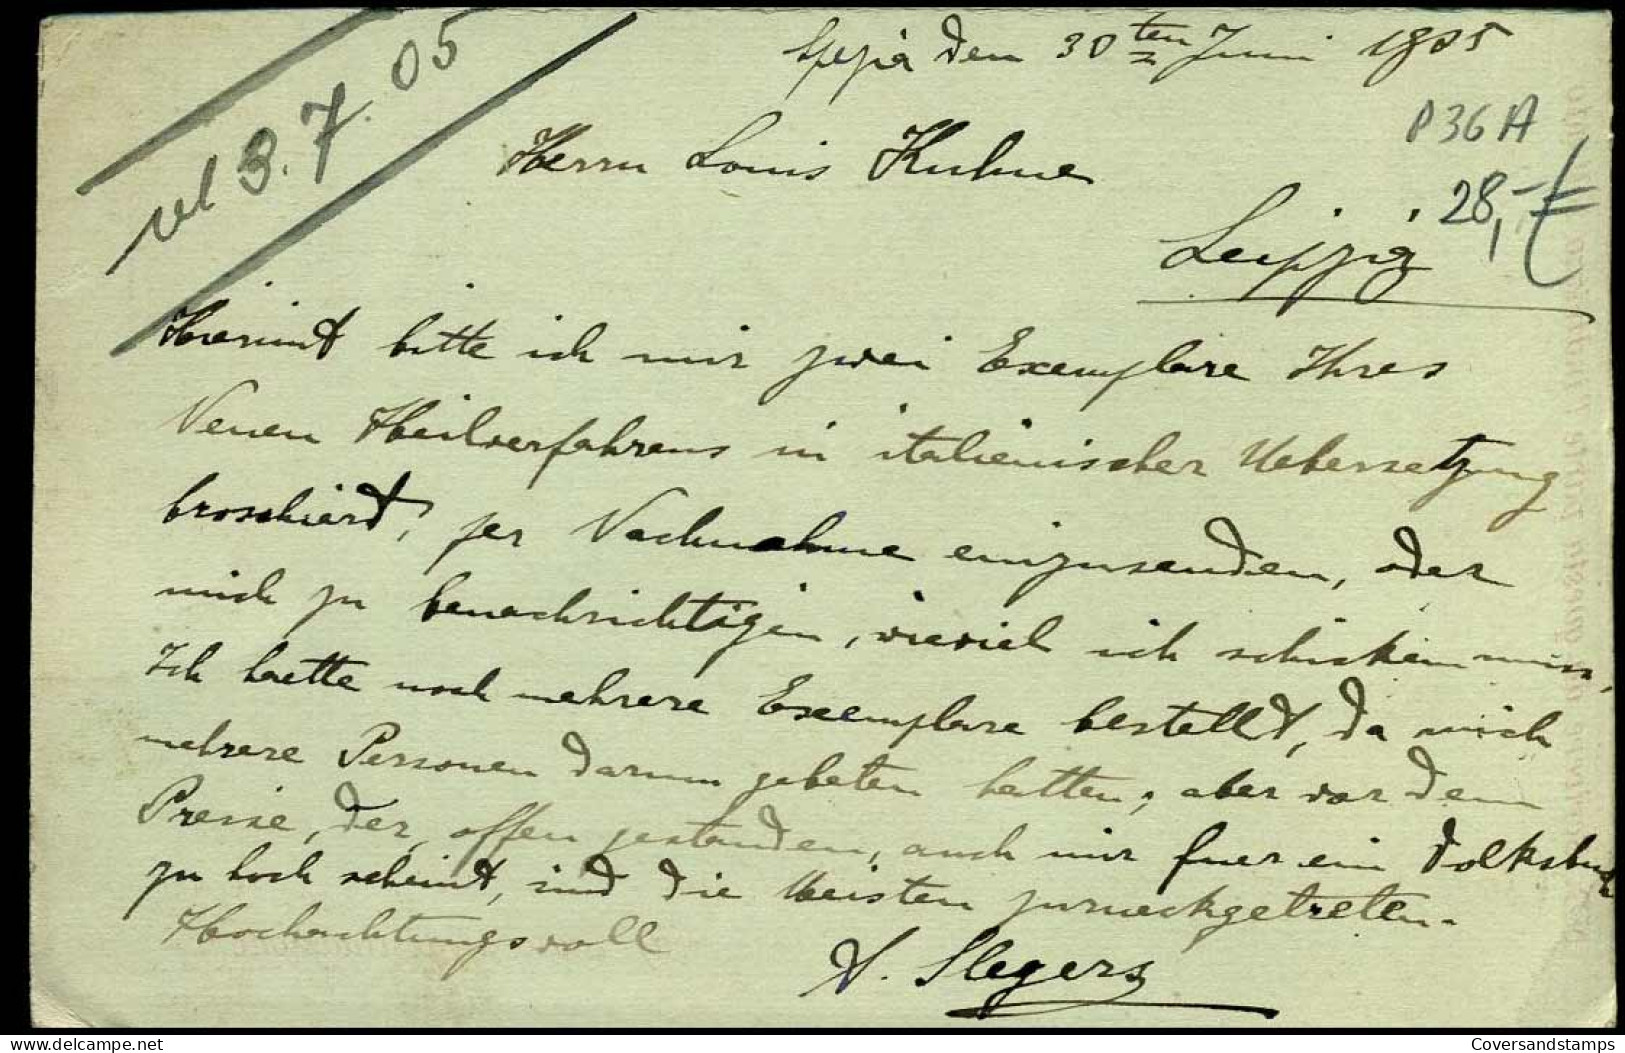 Spezia den 30ten Juni 1905
3.7.05
P36A
Herrn Louis Kuhne
28,-€
Leipzig
Hiermit bitte ich mir zwei Exemplare Ihres
Neuen Heilverfahrens in italienischer Uebersetzung
broschiert, per Nachnahme einzusenden, oder
mich zu benachrichtigen, wieviel ich schicken muss.
Ich haette noch mehrere Exemplare bestellt, da mich
mehrere Personen darum gebeten hatten, aber vor dem
Preise, der, offen gestanden, auch mir fuer ein Volksbuch
zu hoch scheint, sind die Meisten zurueckgetreten.
Hochachtungsvoll
A. Slegers
delcampe.net
Coversandstamps